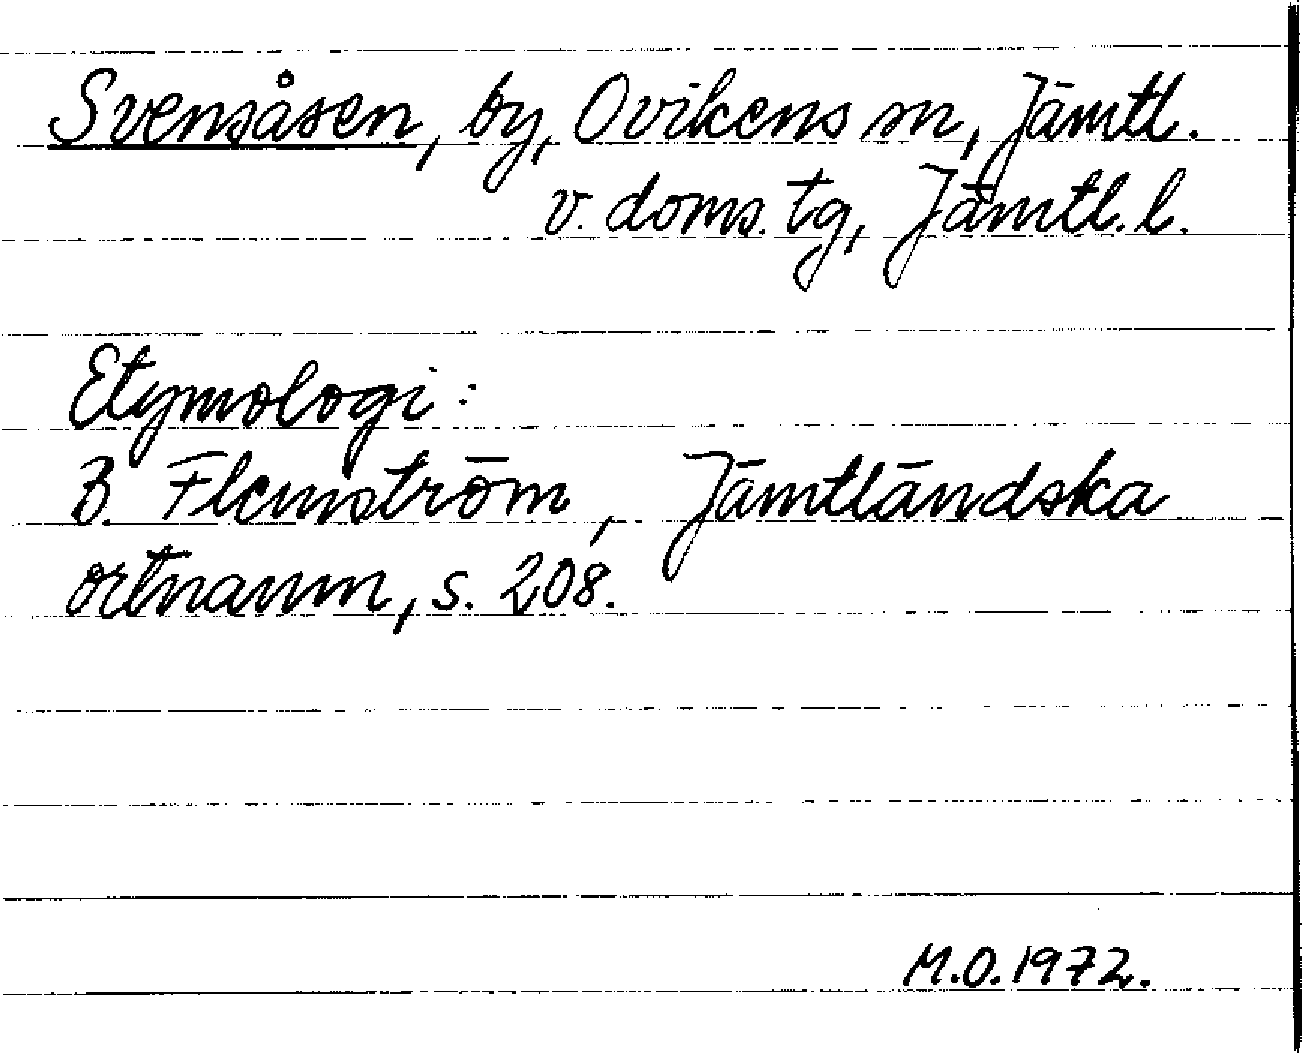 Svensåsen, by, Ovikens sn, Jämtl.
v. doms. tg, Jämtl. l.
Etymologi:
B. Flemström, Jämtländska
ortnamn, s. 208.
M.O. 1972.